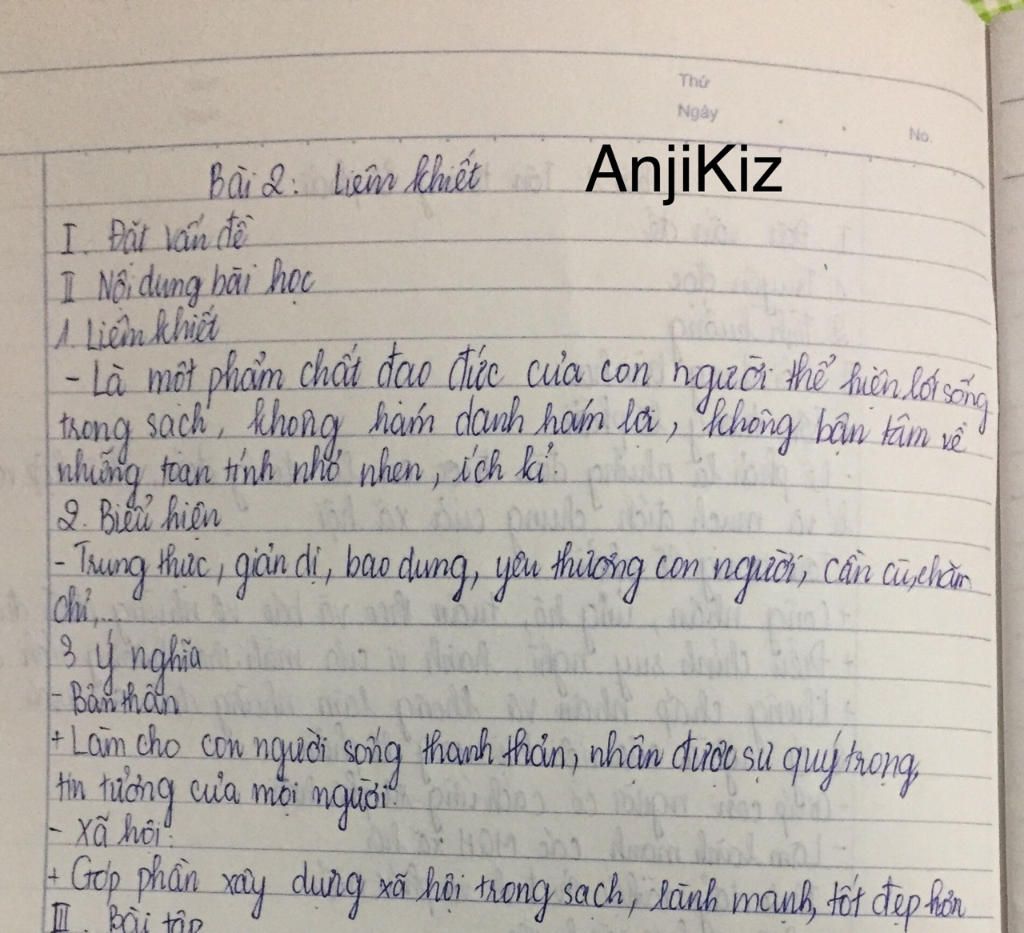 Thứ
Ngày
No.
Bài 2: Liêm khiết AnjiKiz
I. Đặt vấn đề
II Nội dung bài học
1. Liêm khiết
- Là một phẩm chất đạo đức của con người thể hiện lối sống
trong sạch, không hám danh hám lợi, không bận tâm về
những toan tính nhỏ nhen, ích kỉ.
2. Biểu hiện
- Trung thực, giản dị, bao dung, yêu thương con người, cần cù, chăm
chỉ,...
3 Ý nghĩa
- Bản thân
+ Làm cho con người sống thanh thản, nhận được sự quý trọng,
tin tưởng của mọi người.
- Xã hội:
+ Góp phần xây dựng xã hội trong sạch, lành mạnh, tốt đẹp hơn
III. Bài tập